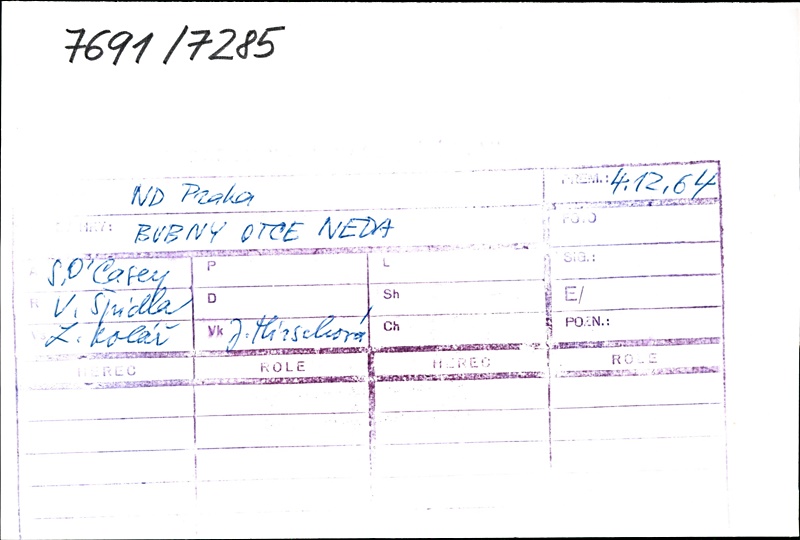 7691/7285
ND Praha PREM.: 4.12.64
BUBNY OTCE NEDA FOTO
S. O'Casey P L SIG.:
R V. Špidla D Sh E/
Z. Kolář Vk J. Hirschová Ch POZN.:
HEREC ROLE HEREC ROLE